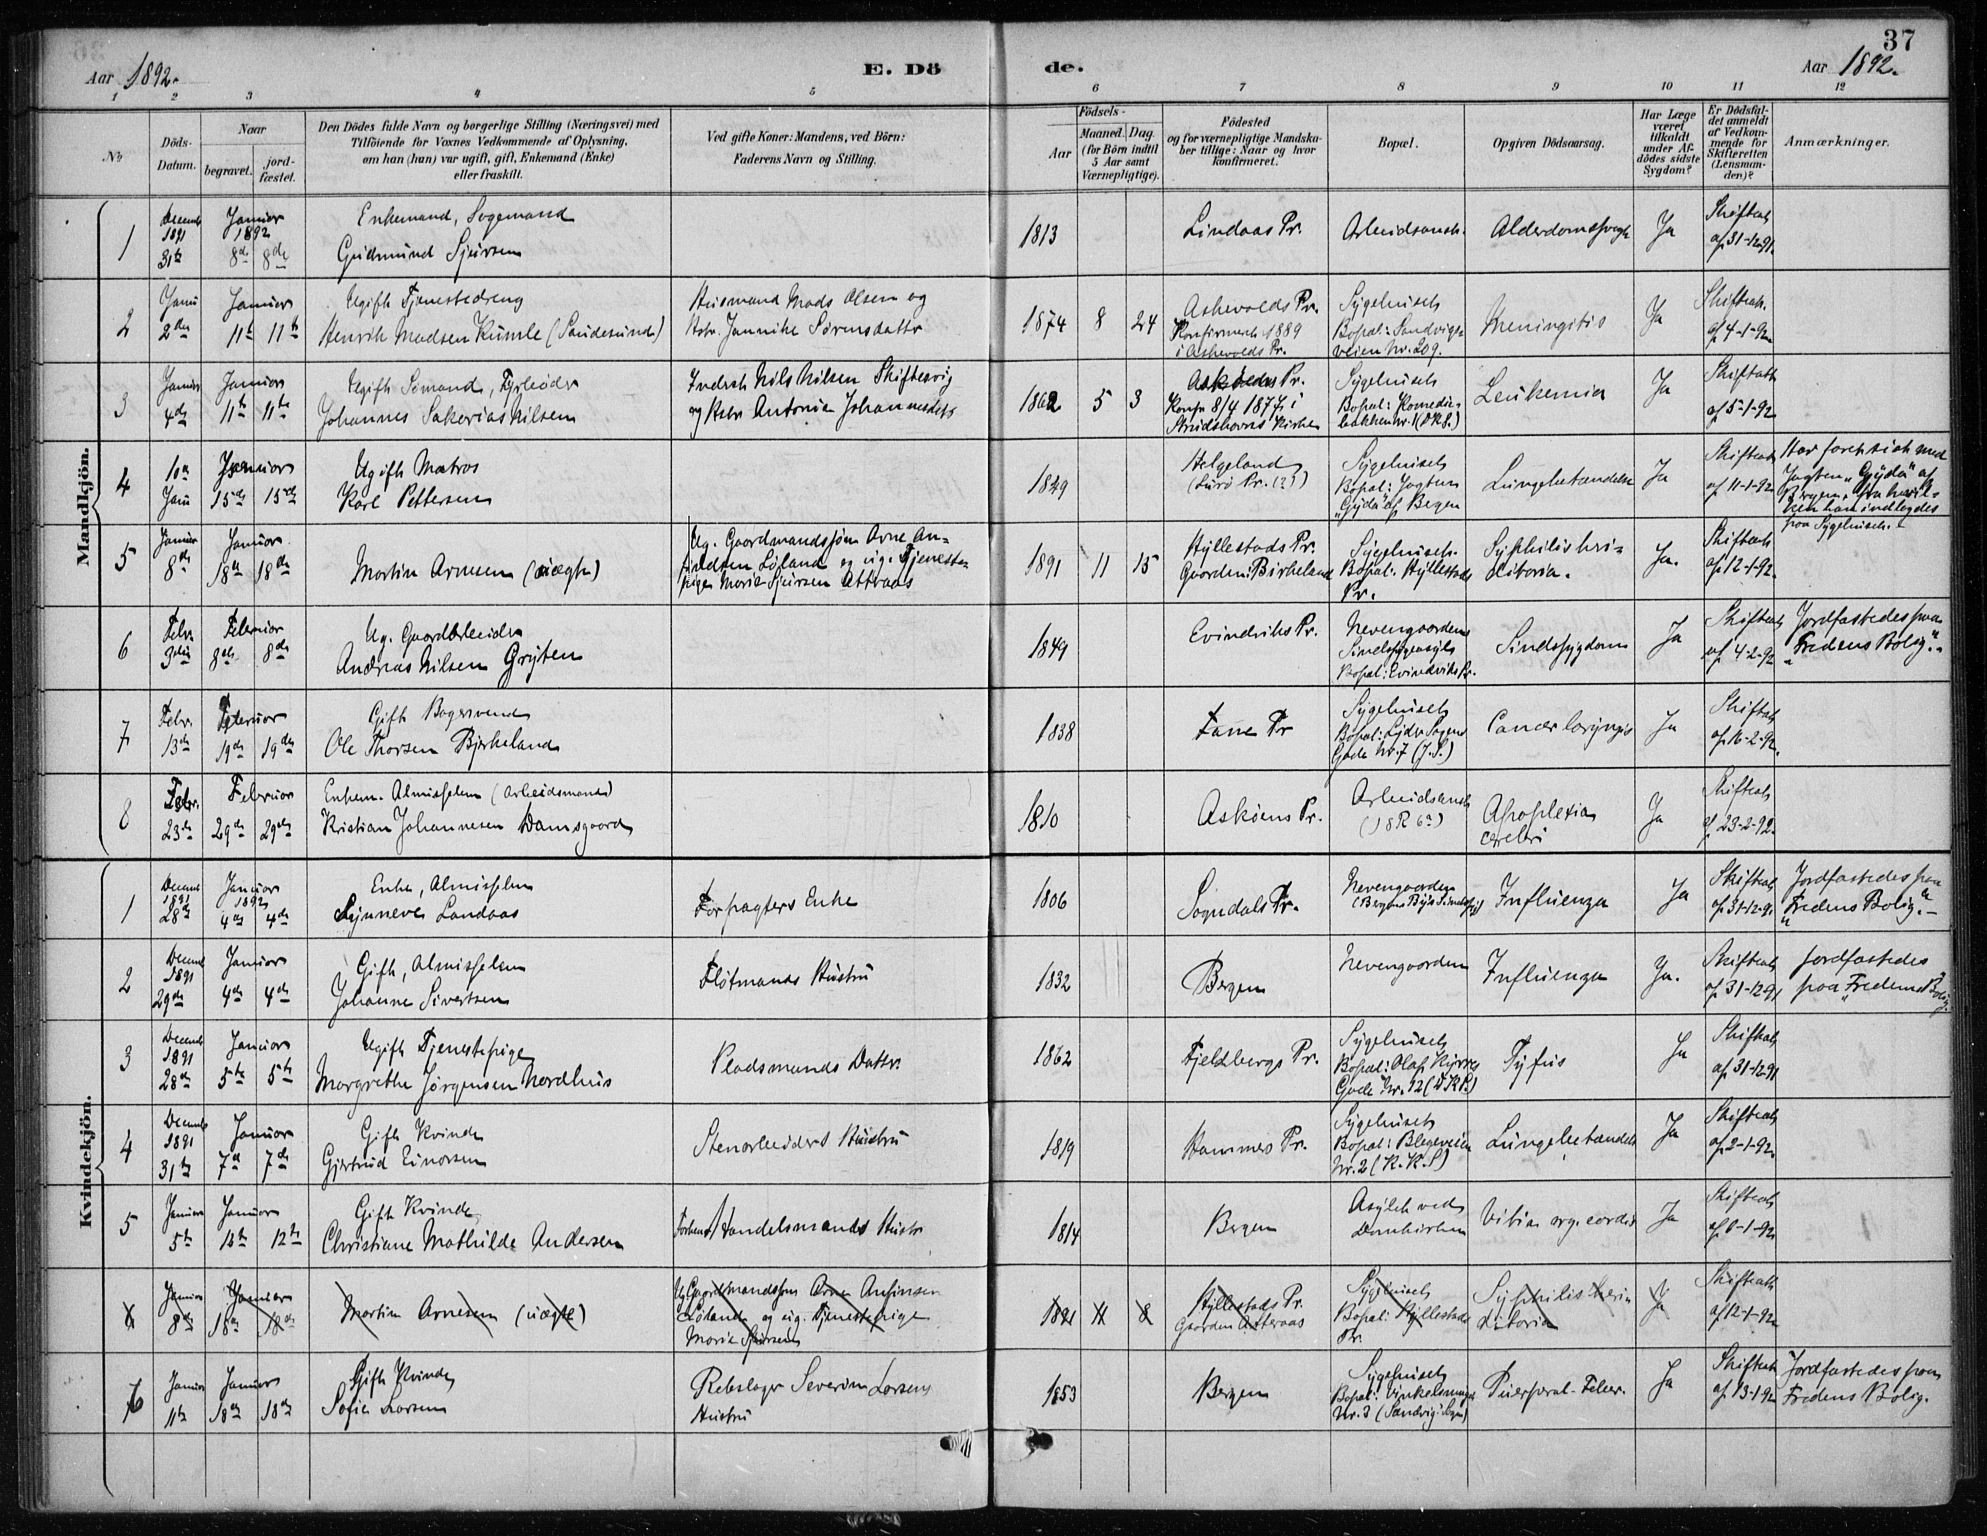 37
Aar 1892. E. Dö de. Aar 1892.
1 2 3 4 5 6 7 8 9 10 11 12
No
Döds-Datum.
Naar
begravet.
jordfæstet.
Den Dödes fulde Navn og borgerlige Stilling (Næringsvei) med
Tilföiende for Voxnes Vedkommende af Oplysning,
om han (hun) var ugift, gift, Enkemand (Enke)
eller fraskilt.
Ved gifte Koner: Mandens, ved Börn:
Faderens Navn og Stilling.
Födsels-
Aar
Maaned. Dag.
(for Börn indtil
5 Aar samt
Værnepligtige).
Födested
og for værnepligtige Mandska-
ber tillige: Naar og hvor
konfirmeret.
Bopæl.
Opgiven Dödsaarsag.
Har Læge
været
tilkaldt
under Af-
dödes sidste
Sygdom?
Er Dödsfal-
det anmeldt
af Vedkom-
mende for
Skifteretten
(Lensman-
den)?
Anmærkninger.
Mandkjön.
1
Decemb 1891 31te
Januar 1892 8de 8de
Enkemand, Sagmand
Gudmund Sjursen
1813
Lindaas Pr.
Arbeidsanst.
Ja
Skifteatt af 31-12-91.
2
Janu 2den
Januar 11te 11te
Ugift Tjenestedreng
Henrik Madsen Kumle (Sandesund)
Husmand Mads Olsen og
Hstr. Jannike Sörensdattr
1874 8 24
Askevolds Pr.
Konfirmeret 1889
i Askevolds Pr.
Sygehuset
Bopæl: Sandvigs-
veien Nr. 209.
Meningitis
Ja
Skifteatt. af 4-1-92.
3
Januar 4de
Januar 11te 11te
Ugift Sömand, Fyrböder
Johannes Sakarias Nilsen
Inderst Nils Nilsen Skiftesvig
og Hstr Antonia Johannesdtr
1862 5 3
Askøens Pr.
Konfr 8/4 1877 i
Strudshavns Kirke
Sygehuset
Bopæl: Komedie-
bakken Nr. 1 (DKS.)
Leukemia
Ja
Skifteatt af 5-1-92
4
10de Janu
Januar 15de 15de
Ugift Matros
Karl Pettersen
1849
Helgeland
(Lurö Pr. (?))
Sygehuset
Bopæl: Jagten
"Gyda" af Bergen
Lungebetændelse
Ja
Skifteatt af 11-1-92
Har faret sidst med
Jagten "Gyda" af
Bergen, fra hvil-
ken han indlagdes
paa Sygehuset.
5
Januar 8de
Januar 18de 18de
Martin Arnesen (uægte)
Ug. Gaardmandssøn Arne An-
findsen Löland og ug. Tjeneste-
pige Marie Sjursen Atteraas
1891 11 15
Hyllestads Pr.
Gaarden: Birkeland
Sygehuset.
Bopæl: Hyllestads
Pr.
Syphilis heri-
ditaria.
Ja.
Skifteatt af 12-1-92.
6
Febr. 3die
Februar 8de 8de
Ug. Gaardarbeider
Andreas Nilsen Gryten
1849
Evindviks Pr.
Nevengaardens
Sindssygeasyl
Bopæl: Evindviks Pr.
Sindssygdom
Ja
Skifteatt af 4-2-92
Jordfæstedes paa
"Fredens Bolig."
7
Febr. 13de
Februar 19de 19de
Gift Bagersvend
Ole Thorsen Bjirkeland
1838
Fane Pr
Sygehuset
Bopæl: Lyder Sagens
Gade Nr. 7 (J.S.)
Cancer laryngis
Ja
Skifteatt af 16-2-92.
8
Febr. 23de
Februar 29de 29de
Enkem. Almisselem (Arbeidsmand)
Kristian Johannesen Damsgaard
1810
Askøens Pr.
Arbeidsanst
(18 R 6?)
Apoplexia
cerebri
Ja
Skifteatt af 23-2-92.
Kvindekjön.
1
Decemb 1891 28de
Januar 1892 4de 4de
Enke, Almisselem
Synneve Landaas
Forpagters Enke
1806
Sogndals Pr.
Nevengaarden
Influenza
Ja
Skifteatt af 31-12-91
Jordfæstedes paa
"Fredens Bolig."
2
Decemb 1891 29de
Januar 4de 4de
Gift, Almisselem
Johanne Sivertsen
Flötmands Hustru
1832
Bergen
Nevengaarden
Influenza
Ja.
Skifteatt af 31-12-91
Jordfæstedes
paa "Fredens Bolig."
3
Decemb 1891 28de
Januar 5te 5te
Ugift Tjenestepige
Margrethe Jørgensen Nordhus
Pladsmands Datter.
1862
Fjeldbergs Pr.
Sygehuset
Bopæl: Olaf Kyrres
Gade Nr. 12 (DKS.)
Tyfus
Ja
Skifteatt af 31-12-91
4
Decemb 1891 31te
Januar 7de 7de
Gift Kvinde
Gjertrud Einarsen
Stenarbeiders Hustru
1819
Hammers Pr.
Sygehuset
Bopæl: Blegeveien
Nr. 2 (K.K.S)
Lungebetændelse
Ja
Skifteatt af 2-1-92.
5
Januar 5te
Januar 12te 12te
Gift Kvinde
Christiane Mathilde Andersen
Forhenv. Handelsmands Hustr
1814
Bergen
Asylet ved
Domkirken
Vitia org. cordis
Ja
Skifteatt af 6-1-92.
6
Januar 8de
Januar 18de 18de
Martin Arnesen (uægte)
Ug Gaardmandssøn Arne Anfinsen
Löland og ug. Tjenestepige
Marie Sjursen
1891 11 8
Hyllestads Pr.
Gaarden Atteraas
Sygehuset
Bopæl: Hyllestads
Pr.
Syphilis heri-
ditaria
Ja
Skifteatt af 12-1-92
6
Januar 11te
Januar 18de 18de
Gift Kvinde
Sofie Larsen
Rebslager Severin Larsens
Hustru
1853
Bergen
Sygehuset
Bopæl: Vinkelsmuget
Nr. 3 (Sandvig: Sogn)
Puerperal-Feber.
Ja
Skifteatt af 13-1-92
"Jordfæstedes paa
Fredens Bolig.